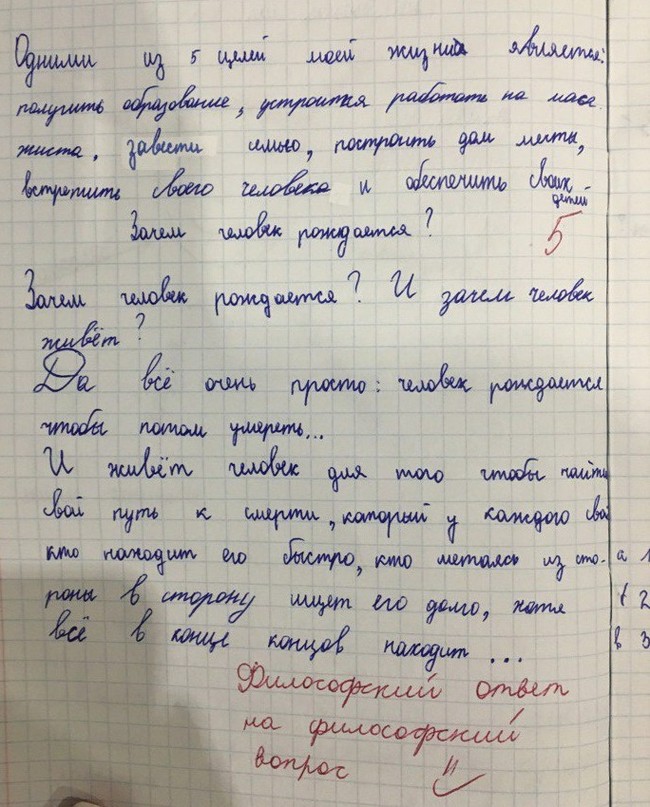 Одними из 5 целей моей жизни является:
получить образование, устроится работать на масса
жиста, завести семью, построить дом мечты,
встретить своего человека и обеспечить своих
детей
Зачем человек рождается?
5
Зачем человек рождается? И зачем человек
живёт?
Да всё очень просто: человек рождается
чтобы потом умереть...
И живёт человек для того чтобы найти
свой путь к смерти, который у каждого свой
кто находит его быстро, кто метаясь из сто-
роны в сторону ищет его долго, хотя
всё в конце концов находит ...
а 1
2
в 3
Философский ответ
на философский
вопрос